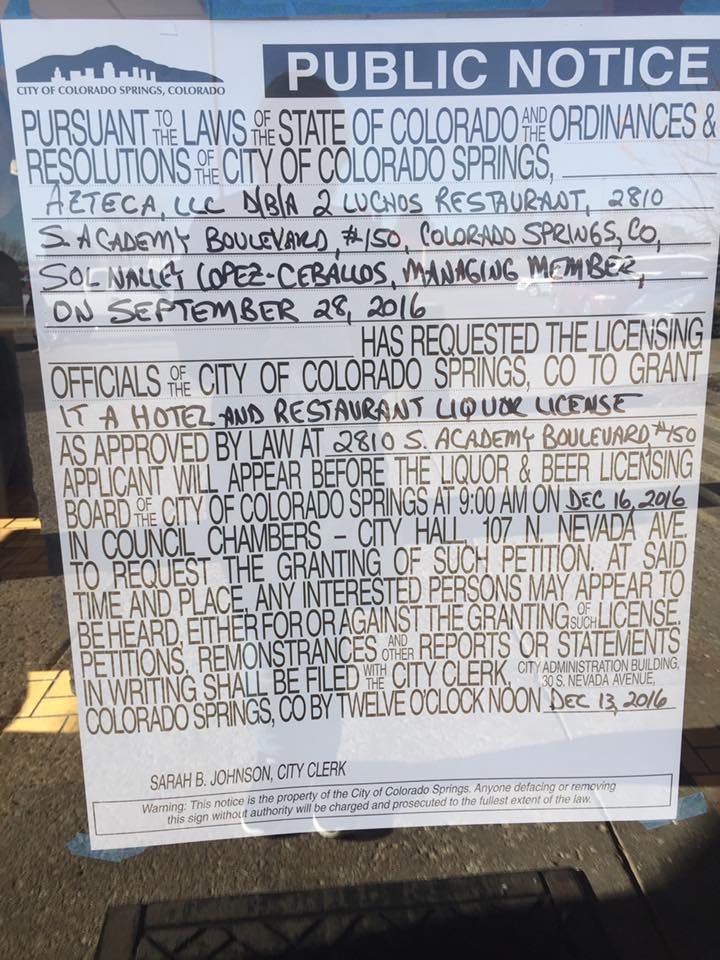 CITY OF COLORADO SPRINGS, COLORADO
PUBLIC NOTICE
PURSUANT TO THE LAWS OF THE STATE OF COLORADO AND THE ORDINANCES &
RESOLUTIONS OF THE CITY OF COLORADO SPRINGS,
AZTECA, LLC D/B/A 2 LUCHOS RESTAURANT, 2810
S. ACADEMY BOULEVARD, #150, COLORADO SPRINGS, CO,
SOL NALLEY LOPEZ-CEBALLOS, MANAGING MEMBER,
ON SEPTEMBER 28, 2016
HAS REQUESTED THE LICENSING
OFFICIALS OF THE CITY OF COLORADO SPRINGS, CO TO GRANT
IT A HOTEL AND RESTAURANT LIQUOR LICENSE
AS APPROVED BY LAW AT 2810 S. ACADEMY BOULEVARD, #150
APPLICANT WILL APPEAR BEFORE THE LIQUOR & BEER LICENSING
BOARD OF THE CITY OF COLORADO SPRINGS AT 9:00 AM ON DEC 16, 2016
IN COUNCIL CHAMBERS – CITY HALL, 107 N. NEVADA AVE.
TO REQUEST THE GRANTING OF SUCH PETITION. AT SAID
TIME AND PLACE, ANY INTERESTED PERSONS MAY APPEAR TO
BE HEARD, EITHER FOR OR AGAINST THE GRANTING OF SUCH LICENSE.
PETITIONS, REMONSTRANCES AND OTHER REPORTS OR STATEMENTS
IN WRITING SHALL BE FILED WITH THE CITY CLERK, CITY ADMINISTRATION BUILDING, 30 S. NEVADA AVENUE,
COLORADO SPRINGS, CO BY TWELVE O'CLOCK NOON DEC 13, 2016
SARAH B. JOHNSON, CITY CLERK
Warning: This notice is the property of the City of Colorado Springs. Anyone defacing or removing
this sign without authority will be charged and prosecuted to the fullest extent of the law.